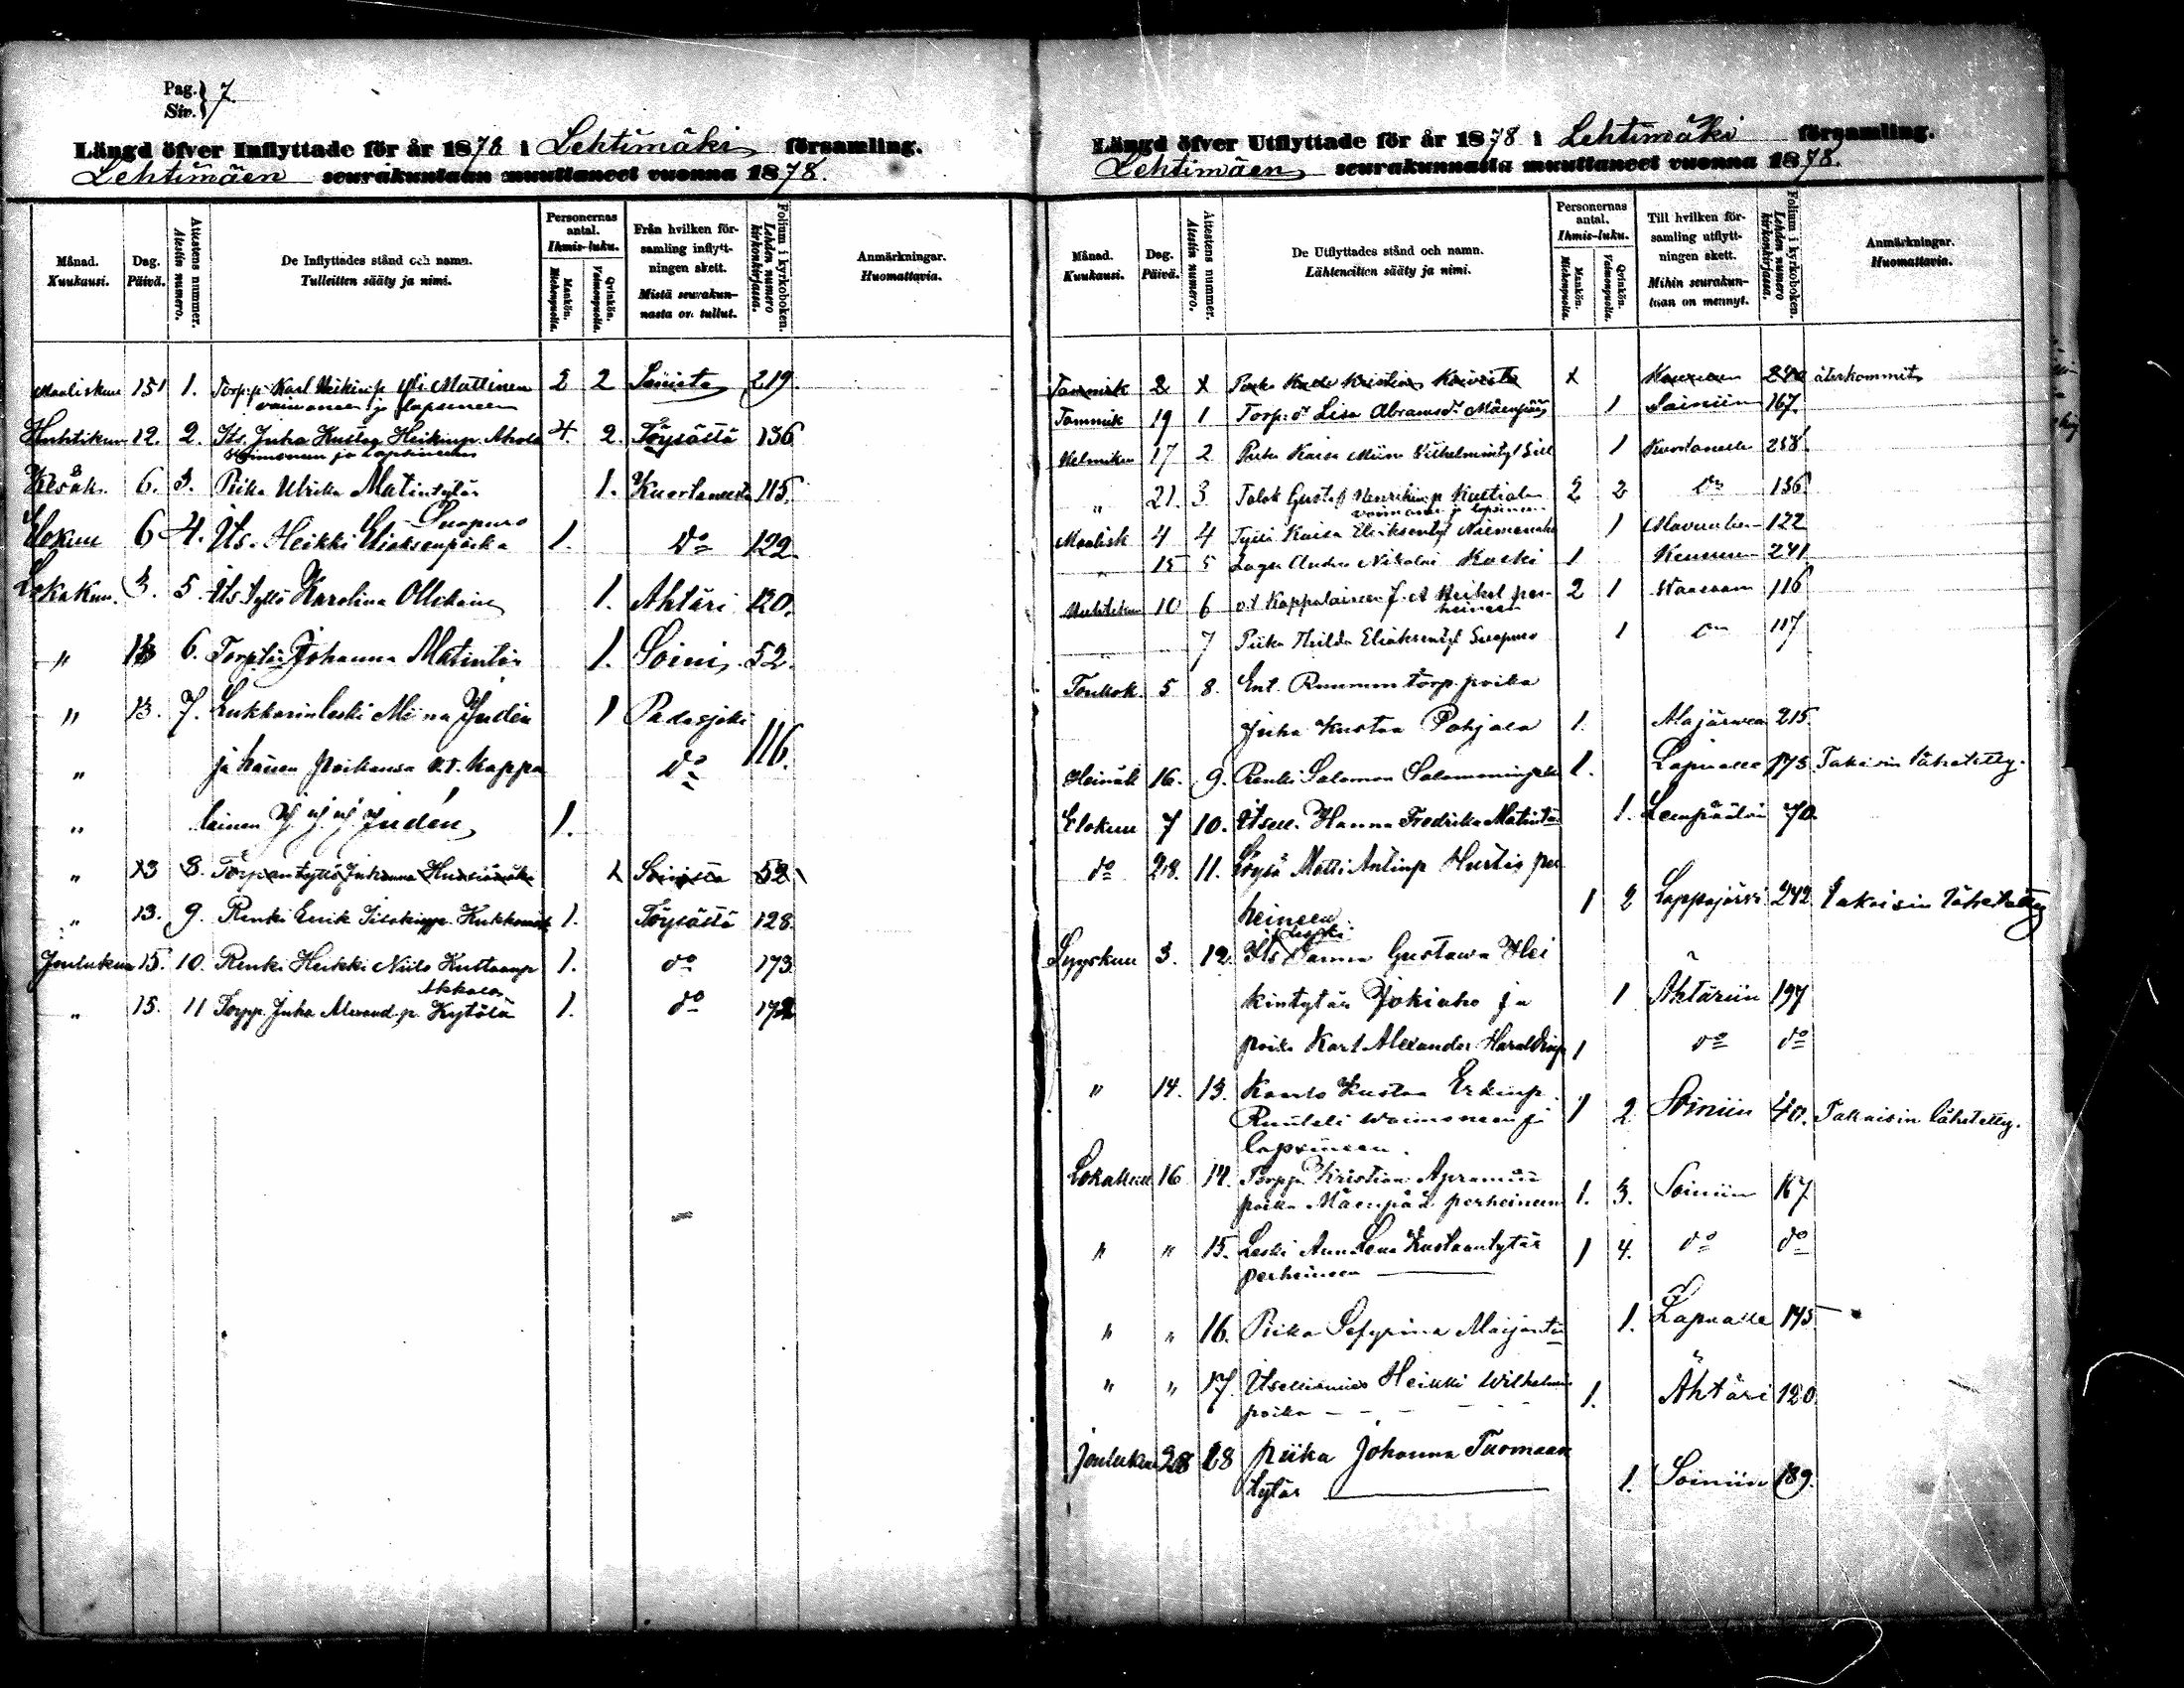 Pag. } 7.
Siv.
Längd öfver Inflyttade för år 1878 i Lehtimäki församling.
Lehtimäen seurakuntaan muuttaneet vuonna 1878.
Månad. Kuukausi.
Dag. Päivä.
Attestens nummer. Atestin numero.
De Inflyttades stånd och namn. Tulleitten sääty ja nimi.
Personernas antal. Ihmis-luku.
Mankön. Miehenpuolia.
Qvinkön. Vaimonpuolia.
Från hvilken församling inflyttningen skett. Mistä seurakunnasta on tullut.
Folium i kyrkoboken. Lehden numero kirkonkirjassa.
Anmärkningar. Huomattavia.
Maaliskuu 15 1. Torp.p. Karl Heikinp. Yli Mattinen 2 2 Soinista 219.
vaimoneen ja lapsineen
Huhtikuu 12. 2. Its. Juha Kustaa Heikinp. Ahola 4. 2. Töysästä 136
vaimoneen ja lapsineen
Kesäk. 6. 3. Piika Ulrika Matintytär 1. Kuortaneesta 115.
Elokuu 6 4. Its. Heikki Eliaksenpoika Suopuro 1. do 122
Lokakuu. 3. 5. Its. tyttö Karolina Ollikaine 1. Ahtäri 120.
" 13 6. Torp.tär Johanna Matintär 1. Soini 52.
" 13. 7. Lukkarinleski Miina Indén 1 Padasjoki
" ja hänen poikansa v.t. Kappa do 116.
" lainen Indén 1.
" 13 8. Torpantyttö Johanna 1 Soinista 52
" 13. 9. Renki Eerik 1. Töysästä 128.
Joulukuu 15. 10. Renki Heikki Niilo Kustaanp. 1. do 173
Akkala
" 15. 11 Torpp. Juha Alexand.p. Kytölä 1. do 172
Längd öfver Utflyttade för år 1878 i Lehtimäki församling.
Lehtimäen seurakunnasta muuttaneet vuonna 1878.
Månad. Kuukausi.
Dag. Päivä.
Attestens nummer. Atestin numero.
De Utflyttades stånd och namn. Lähteneitten sääty ja nimi.
Personernas antal. Ihmis-luku.
Mankön. Miehenpuolia.
Qvinkön. Vaimonpuolia.
Till hvilken församling utflyttningen skett. Mihin seurakuntaan on mennyt.
Folium i kyrkoboken. Lehden numero kirkonkirjassa.
Anmärkningar. Huomattavia.
Tammik 2 Kristian Koivisto 240 återkommit
Tammik 19 1 Torp. dr Lisa Abramsdr Mäenpää 1 Soiniin 167.
Helmikuu 17 2 Piika Kaisa Miina Vilhelmintyt 1 Kuortanelle 258.
" 21. 3 Talok Gustaf Henrikinp. Kultiala 2 2 do 136
vaimoneen ja lapsineen
Maalisk 4 4 Kaisa 1 Alavuu 122
" 15 5 Nikolai Koski 1 241
Huhtikuu 10 6 v.t. Kappalainen J. A. Heikel per- 2 1 116
heineen
7 Piika Hilda Eliaksentyt Suopuro 1 do 117
Toukok. 5 8. Ent. Ruununtorp. poika
Juha Kustaa Pohjala 1. Alajärween 215.
Heinäk 16. 9. Renki Salomon Salomoninpoika 1. Lapualle 175. Takaisin lähetetty.
Elokuu 7 10. Itsell. Hanna Fredrika Matintär 1. Lempäälän 70.
do 28. 11. Löysä Matti Antinp Hurtig per
heineen. 1 2 Lappajärvi 242 takaisin lähetetty
Syyskuu 3. 12. Its. leski Sanna Gustawa Hei
kintytär Jokiaho ja 1 Ähtäriin 197
poika Karl Alexander Haraldinp. 1 do do
" 14. 13. Kaarlo Kustaa Erkinp.
waimoneen ja 1 2 Soiniin 40. Takaisin lähetetty.
lapsineen.
Lokakuu 16 14. Torpp. Kristian Apramin
poika Mäenpää perheineen 1. 3. Soiniin 167
" " 15. Leski Ann Lena Kustaantytär 1 4. do do
perheineen
" " 16. Piika Sefyrina Maijantär 1. Lapualle 145
" " 17. Itsellismies Heikki Wilhelmin 1. Ähtäri 120.
poika
Joulukuu 28 18 piika Johanna Tuomaan
tytär 1. Soiniin 189.